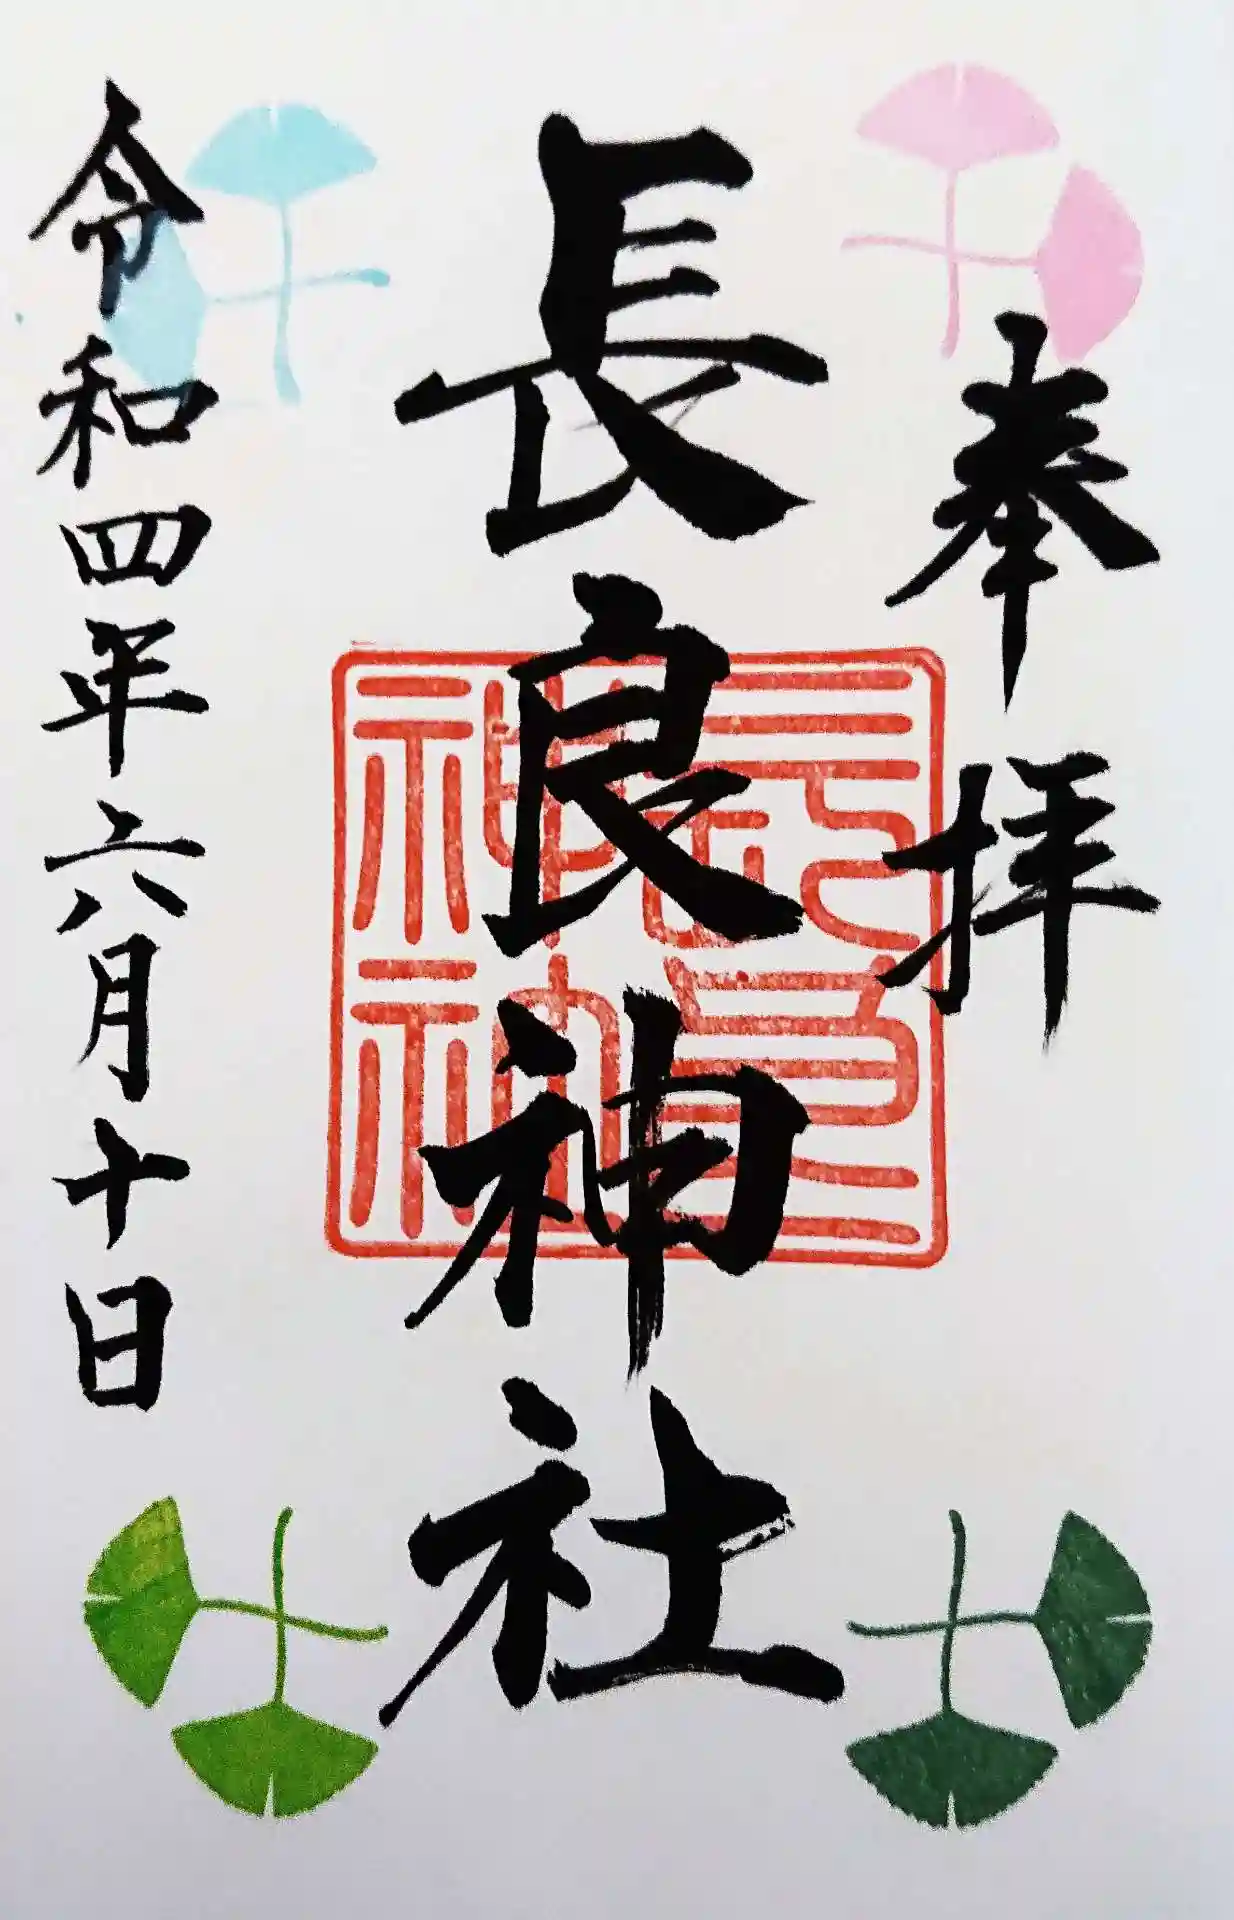 奉拝
長良神社
長良神社
令和四年六月十日